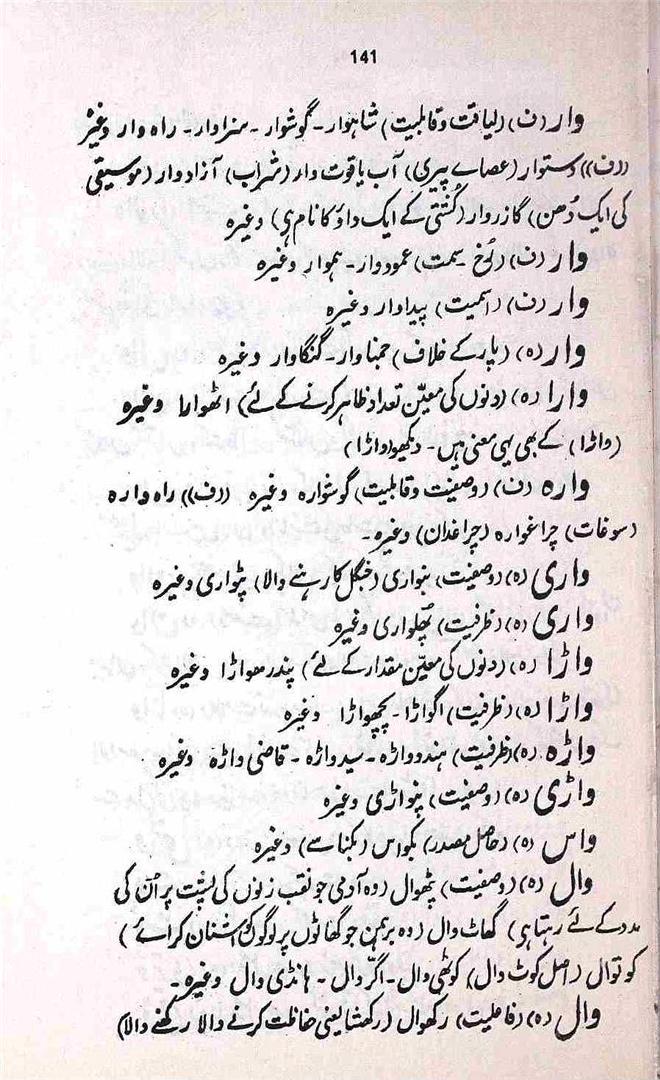 141
وار (ف) (لیاقت و قابلیت) شاہوار۔ گوشوار۔ سزاوار۔ راہ وار وغیرہ
((ف)) دستوار (عصاے پیری) آب یاقوت وار (شراب) آزادوار (موسیقی
کی ایک دُھن) گازروار (کُشتی کے ایک داؤ کا نام ہی) وغیرہ
وار (ف) (رُخ۔ سمت) عمودوار۔ ہموار وغیرہ
وار (ف) (اسمیت) پیداوار وغیرہ
وار (ہ) (پار کے خلاف) جمناوار۔ گنگاوار وغیرہ
وارا (ہ) (دنوں کی معیّن تعداد ظاہر کرنے کے لئے) اٹھوارا وغیرہ
(واڑا) کے بھی یہی معنی ہیں۔ دیکھو (واڑا)
وارہ (ف) (وصفیت و قابلیت) گوشوارہ وغیرہ ((ف)) راہ وارہ
(سوغات) چراغوارہ (چراغدان) وغیرہ۔
واری (ہ) (وصفیت) بنواری (جنگل کا رہنے والا) پٹواری وغیرہ
واری (ہ) (ظرفیت) پھلواری وغیرہ
واڑا (ہ) (دنوں کی معیّن مقدار کے لئے) پندرھواڑا وغیرہ
واڑا (ہ) (ظرفیت) اگواڑا۔ پچھواڑا وغیرہ
واڑہ (ہ) (ظرفیت) ہندوواڑہ۔ سیدواڑہ۔ قاضی واڑہ وغیرہ
واڑی (ہ) (وصفیت) پنواڑی وغیرہ
واس (ہ) (حاصل مصدر) بکواس (بکنا سے) وغیرہ
وال (ہ) (وصفیت) پٹھوال (وہ آدمی جو نقب زنوں کی پشت پر اُن کی
مدد کے لئے رہتا ہی) گھاٹ وال (وہ برہمن جو گھاٹوں پر لوگوں کو اشنان کرائے)
کوتوال (اصل کوٹ وال) کوٹھی وال۔ اگر وال۔ ہانڈی وال وغیرہ۔
وال (ہ) (فاعلیت) رکھوال (رکھشا یعنی حفاظت کرنے والا رکھنے والا)